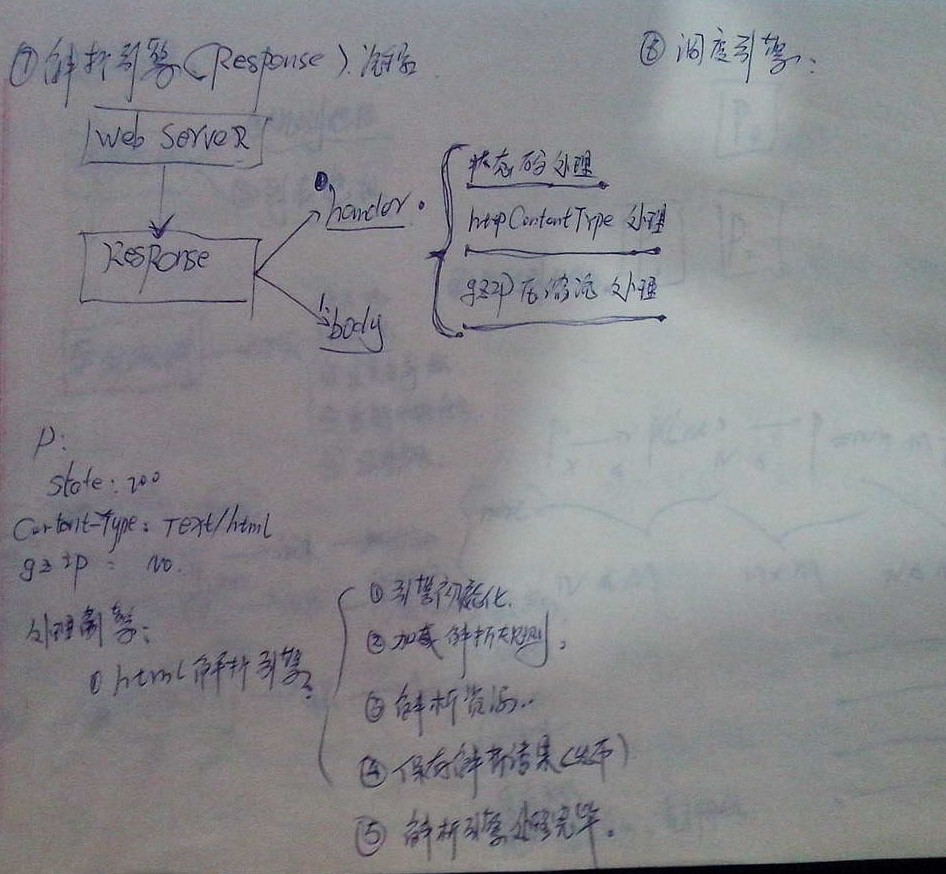 ⑦ 解析引擎(Response).流程
⑧ 调度引擎:
Web ServeR
Response
hander.
body
状态码处理
http ContentType 处理
gzip压缩流处理
P:
State: 200
Content-Type: Text/html
gzip: no.
处理引擎:
① html解析引擎
① 引擎初始化.
② 加载解析规则;
③ 解析资源..
④ 保存解析结果()
⑤ 解析引擎处理完毕。